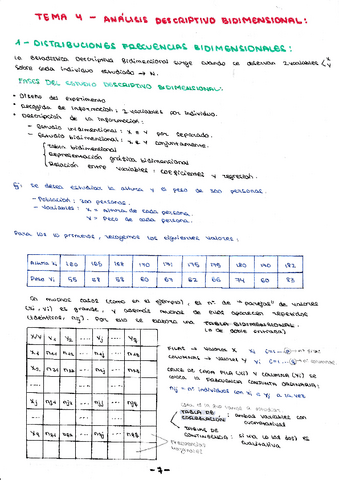 TEMA 4 - ANÁLISIS DESCRIPTIVO BIDIMENSIONAL:
1 - DISTRIBUCIONES FRECUENCIAS BIDIMENSIONALES:
La estadística Descriptiva Bidimensional surge cuando se observan 2 variables
sobre cada individuo estudiado → N.
FASES DEL ESTUDIO DESCRIPTIVO BIDIMENSIONAL:
• Diseño del experimento
• Recogida de información: 2 variables por individuo.
• Descripción de la información:
- Estudio unidimensional: X e Y por separado.
- Estudio bidimensional: X e Y conjuntamente.
Tabla bidimensional
Representación gráfica bidimensional
Relación entre variables: coeficientes y regresión.
Ej: Se desea estudiar la altura y el peso de 200 personas.
- Población: 200 personas.
- Variables: X = Altura de cada persona.
Y = Peso de cada persona.
Para los 10 primeros, recogemos los siguientes valores:
Altura Xi
Peso Yi
En muchos casos (como en el ejemplo), el nº de "parejas" de valores
(xi, yi) es grande, y además muchos de ellos aparecen repetidos
(idénticos, nij). Por eso se elabora una TABLA BIDIMENSIONAL
(o de doble entrada)
X/Y y1 y2 ... yj ... yq
FILAS → valores X
COLUMNAS → valores Y
CRUCE DE CADA FILA (xi) Y COLUMNA (yj) se
coloca la FRECUENCIA CONJUNTA ORDINARIA:
nij = nº individuos con xi e yj a la vez
TABLA DE CORRELACIÓN: ambas variables son
cuantitativas
TABLA DE CONTINGENCIA: si una (o las dos) es
cualitativa
Frecuencias marginales
-7-